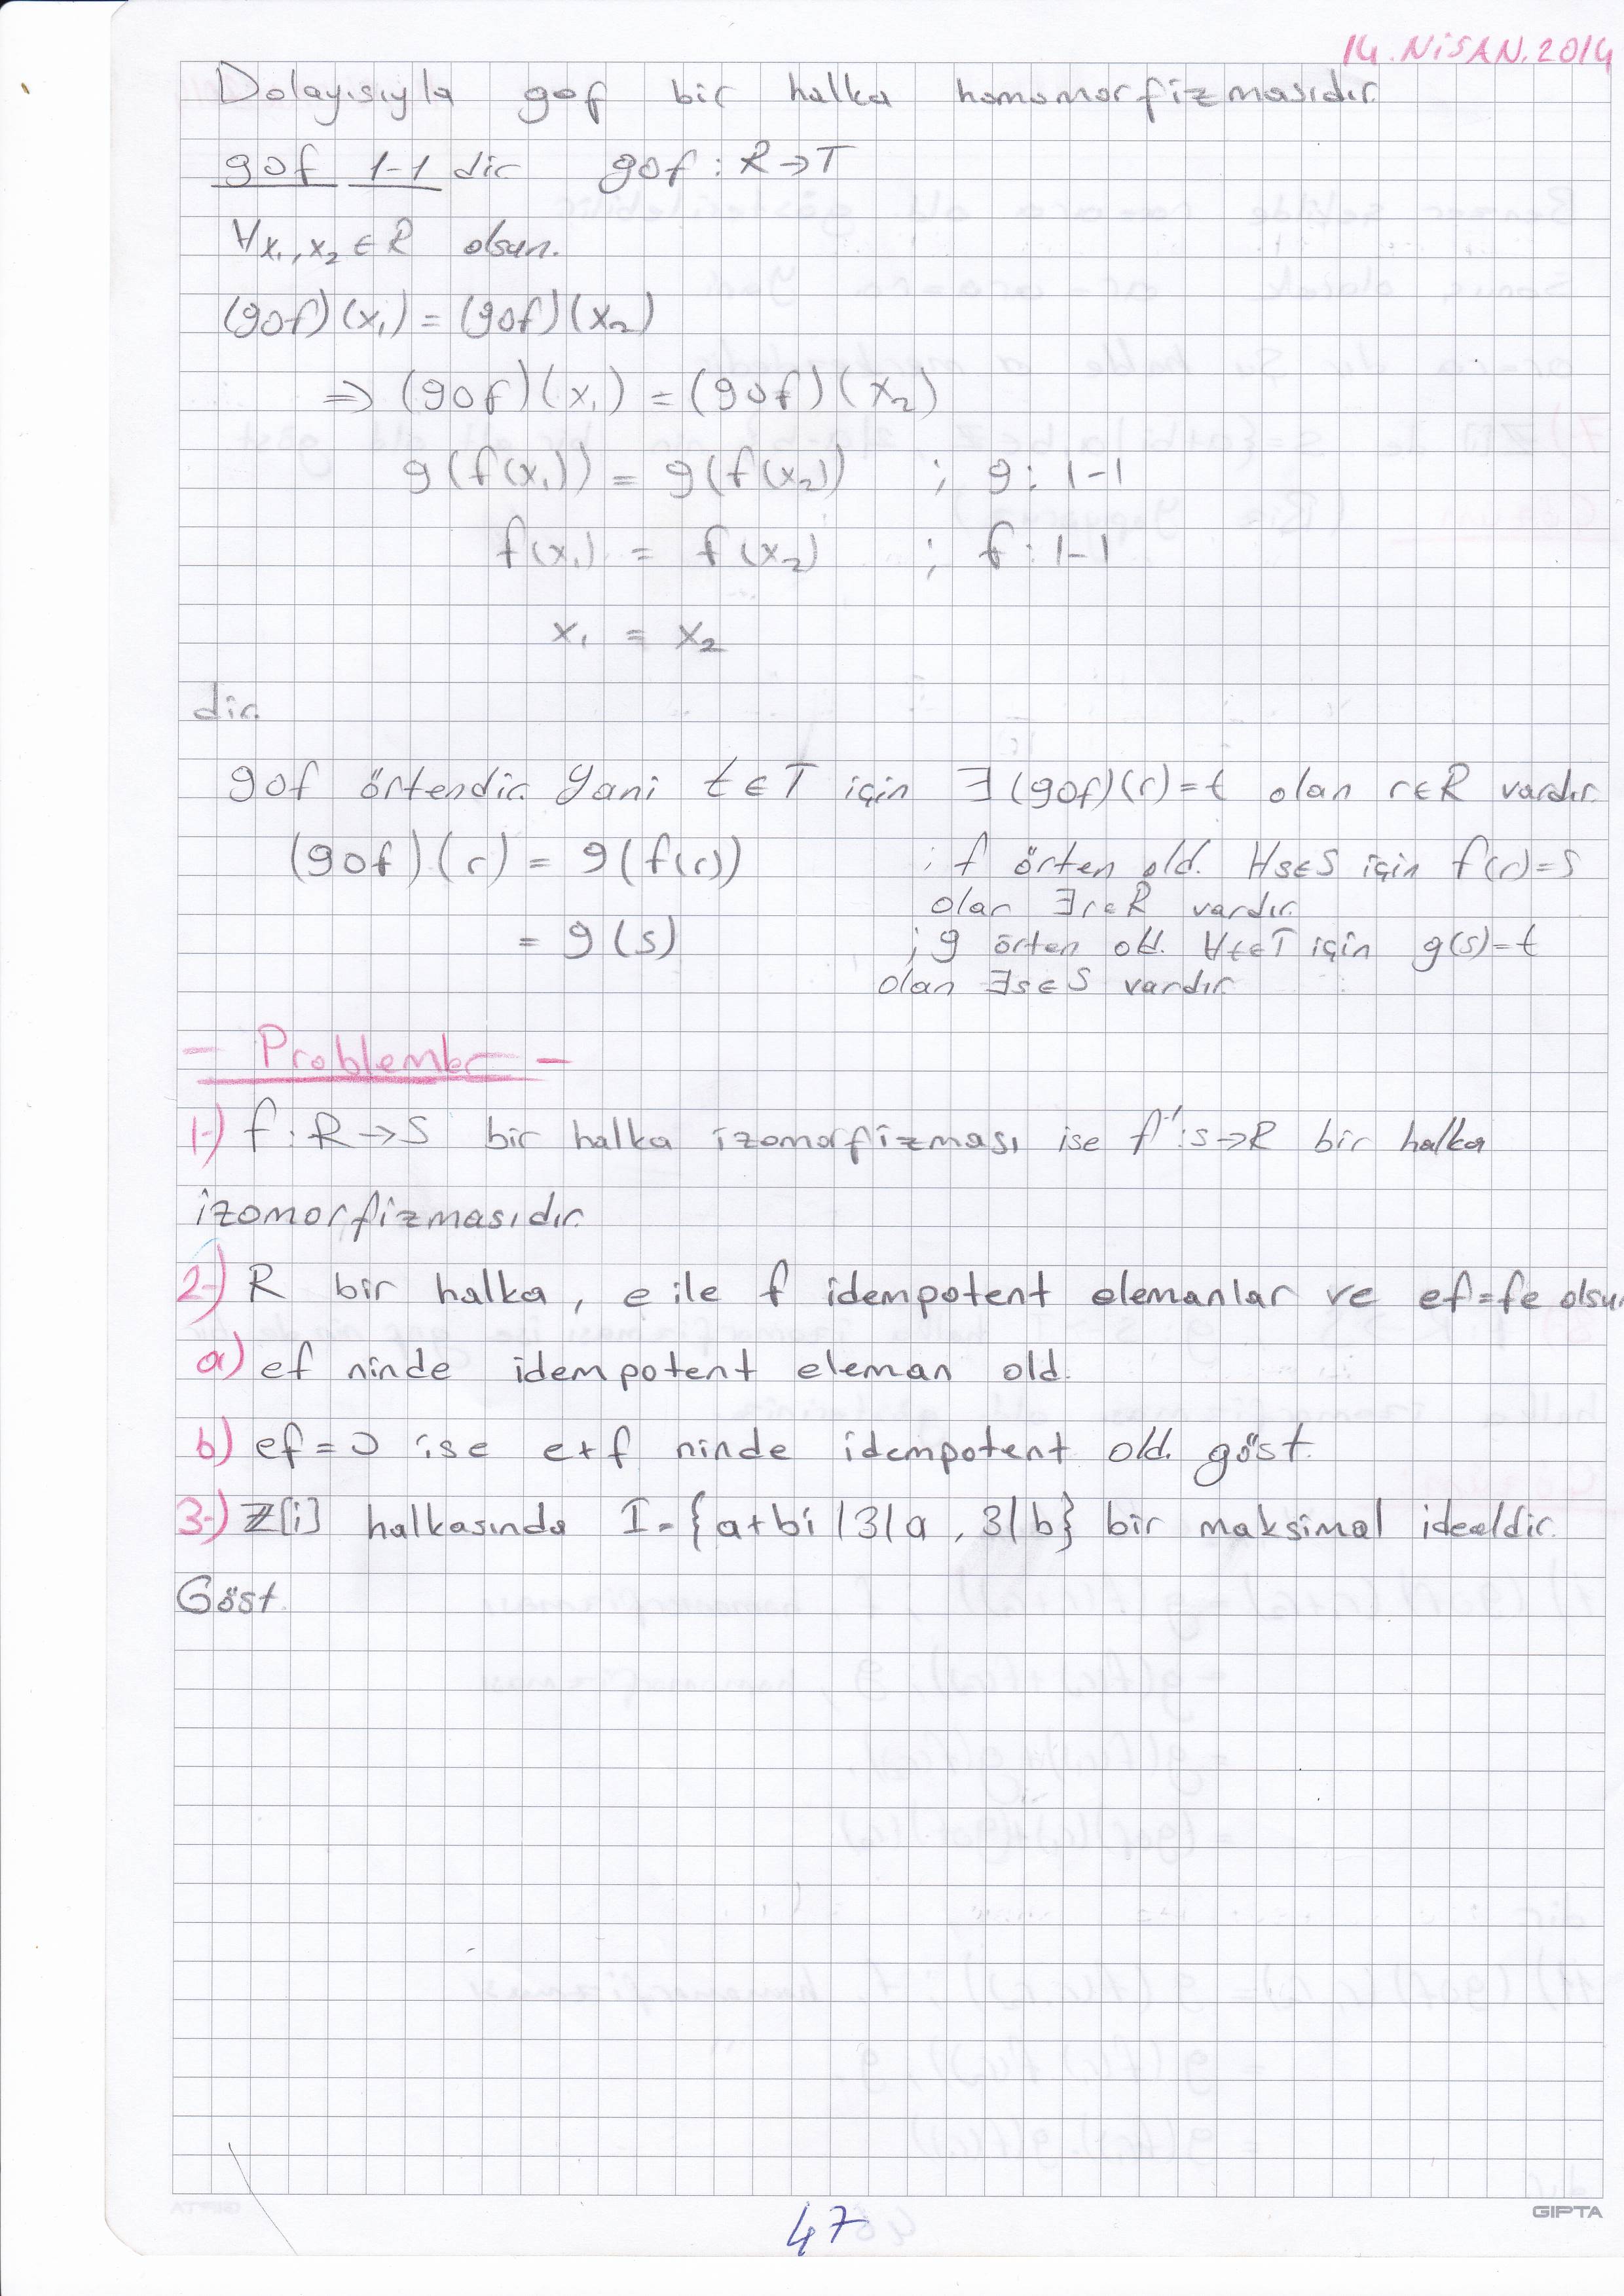 14.NİSAN.2014
Dolayısıyla gof bir halka homomorfizmasıdır.
gof 1-1 dir gof : R→T
∀x₁,x₂∈R olsun.
(gof)(x₁) = (gof)(x₂)
⇒ (gof)(x₁) = (gof)(x₂)
g(f(x₁)) = g(f(x₂)) ; g : 1-1
f(x₁) = f(x₂) ; f : 1-1
x₁ = x₂
dir.
gof örtendir. Yani t∈T için ∃ (gof)(r)=t olan r∈R vardır.
(gof)(r) = g(f(r)) ; f örten old. ∀s∈S için f(r)=s
olan ∃r∈R vardır.
= g(s) ; g örten old. ∀t∈T için g(s)=t
olan ∃s∈S vardır.
- Problemler -
1-) f : R→S bir halka izomorfizması ise f⁻¹:s→R bir halka
izomorfizmasıdır.
2-) R bir halka, e ile f idempotent elemanlar ve ef=fe olsun
a) ef ninde idempotent eleman old.
b) ef=0 ise e+f ninde idempotent old. göst.
3-) ℤ[i] halkasında I={a+bi | 3|a, 3|b} bir maksimal idealdir.
Göst.
47
GIPTA